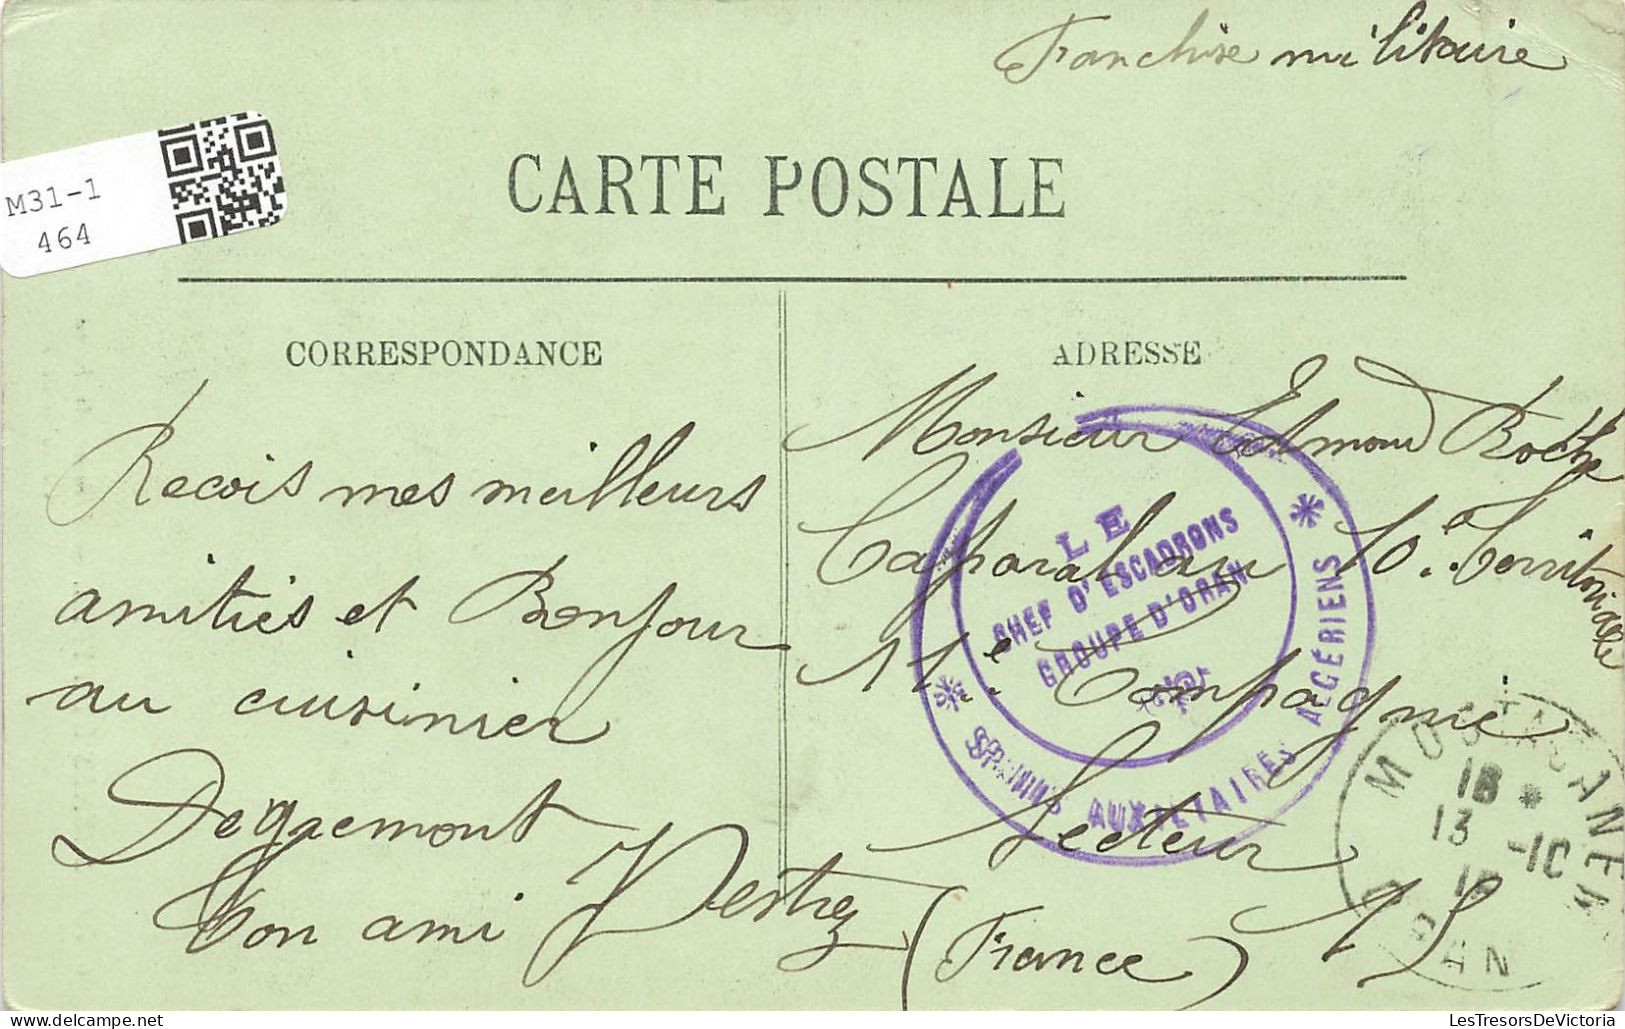 Franchise militaire
M31-1
464
CARTE POSTALE
CORRESPONDANCE
ADRESSE
Recois mes meilleurs
amitiés et Bonjour
au cuisinier
Degremont
Ton ami
Monsieur Edmond Roche
Caporal au 10e Territoriale
11e Compagnie
Secteur
(France)
LE
CHEF D'ESCADRONS
GROUPE D'ORAN
* SPAHIS AUXILIAIRES ALGÉRIENS *
MOSTAGANEM
18 *
13 -10
ORAN
LesTresorsDeVictoria.com